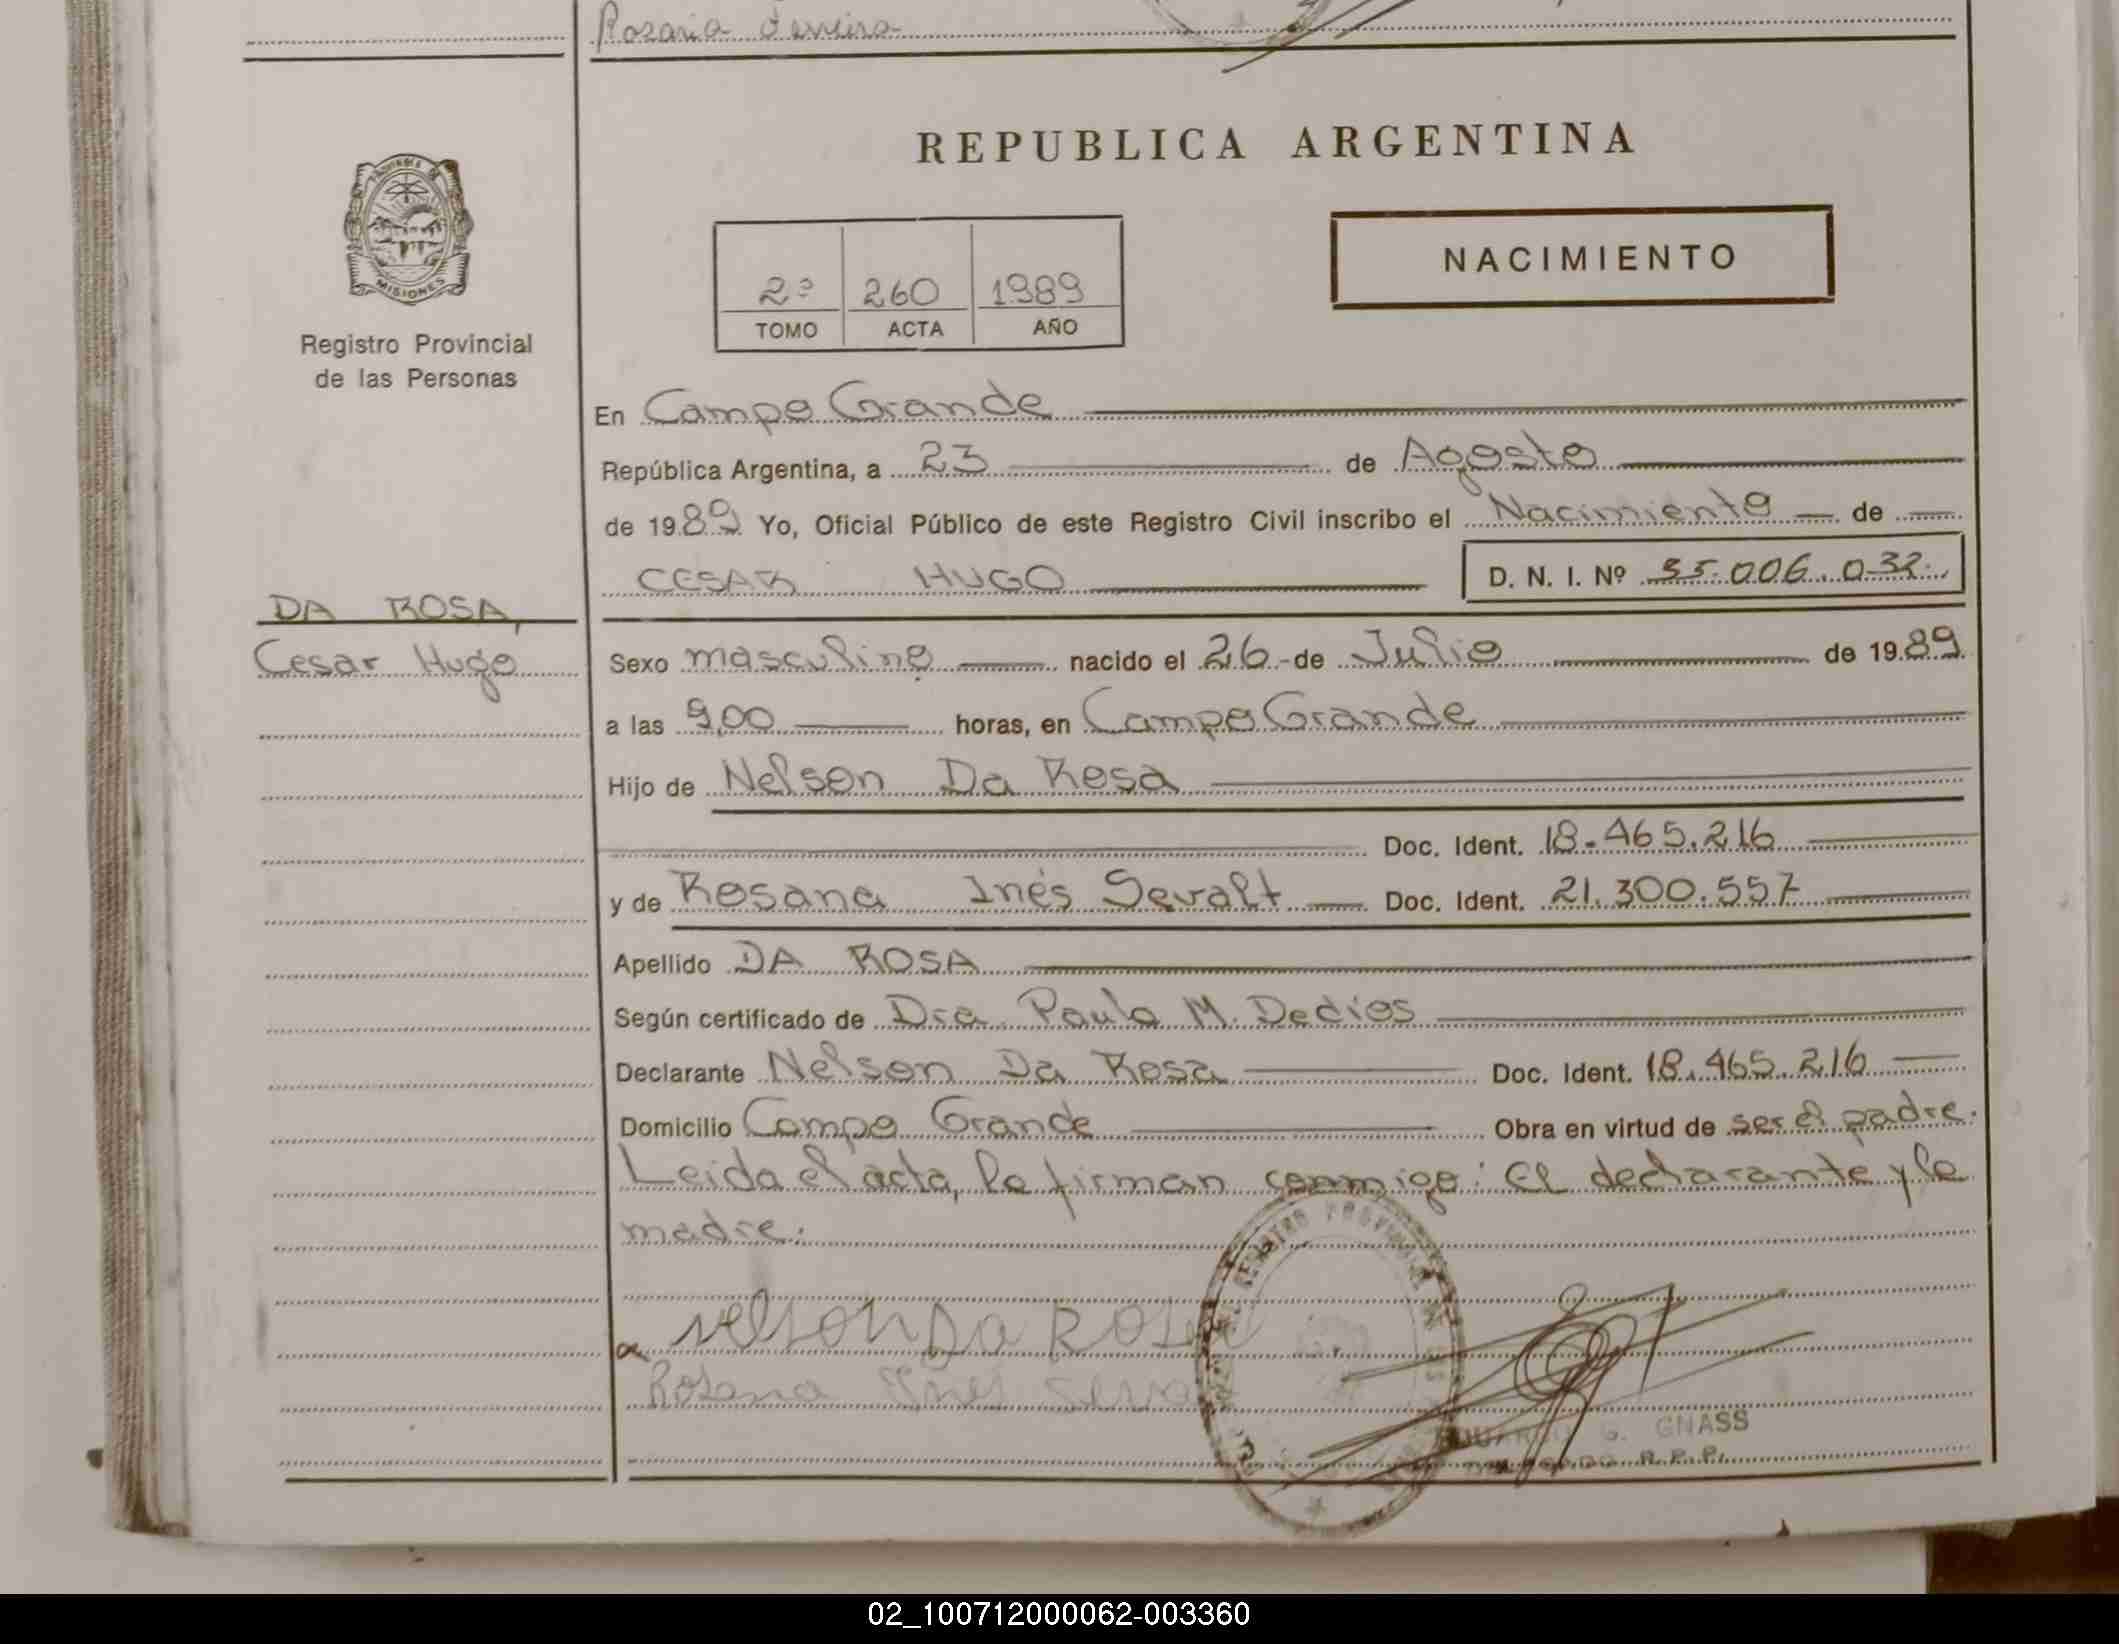 Rosaria Ferreira
REPUBLICA ARGENTINA
NACIMIENTO
2º 260 1989
TOMO ACTA AÑO
MISIONES
Registro Provincial
de las Personas
DA ROSA,
Cesar Hugo
En Campo Grande
República Argentina, a 23 de Agosto
de 1989 Yo, Oficial Público de este Registro Civil inscribo el Nacimiento de
CESAR HUGO D. N. I. Nº 35.006.032
Sexo masculino nacido el 26 de Julio de 1989
a las 9,00 horas, en Campo Grande
Hijo de Nelson Da Rosa
Doc. Ident. 18.465.216
y de Rosana Inés Sevalt Doc. Ident. 21.300.557
Apellido DA ROSA
Según certificado de Dra. Paula M. Dedios
Declarante Nelson Da Rosa Doc. Ident. 18.465.216
Domicilio Campo Grande Obra en virtud de ser el padre.
Leida el acta, la firman conmigo: El declarante y la
madre.
Nelson Da Rosa
Rosana Ines
REGISTRO PROVINCIAL
G. GNASS
R.P.P.
02_100712000062-003360